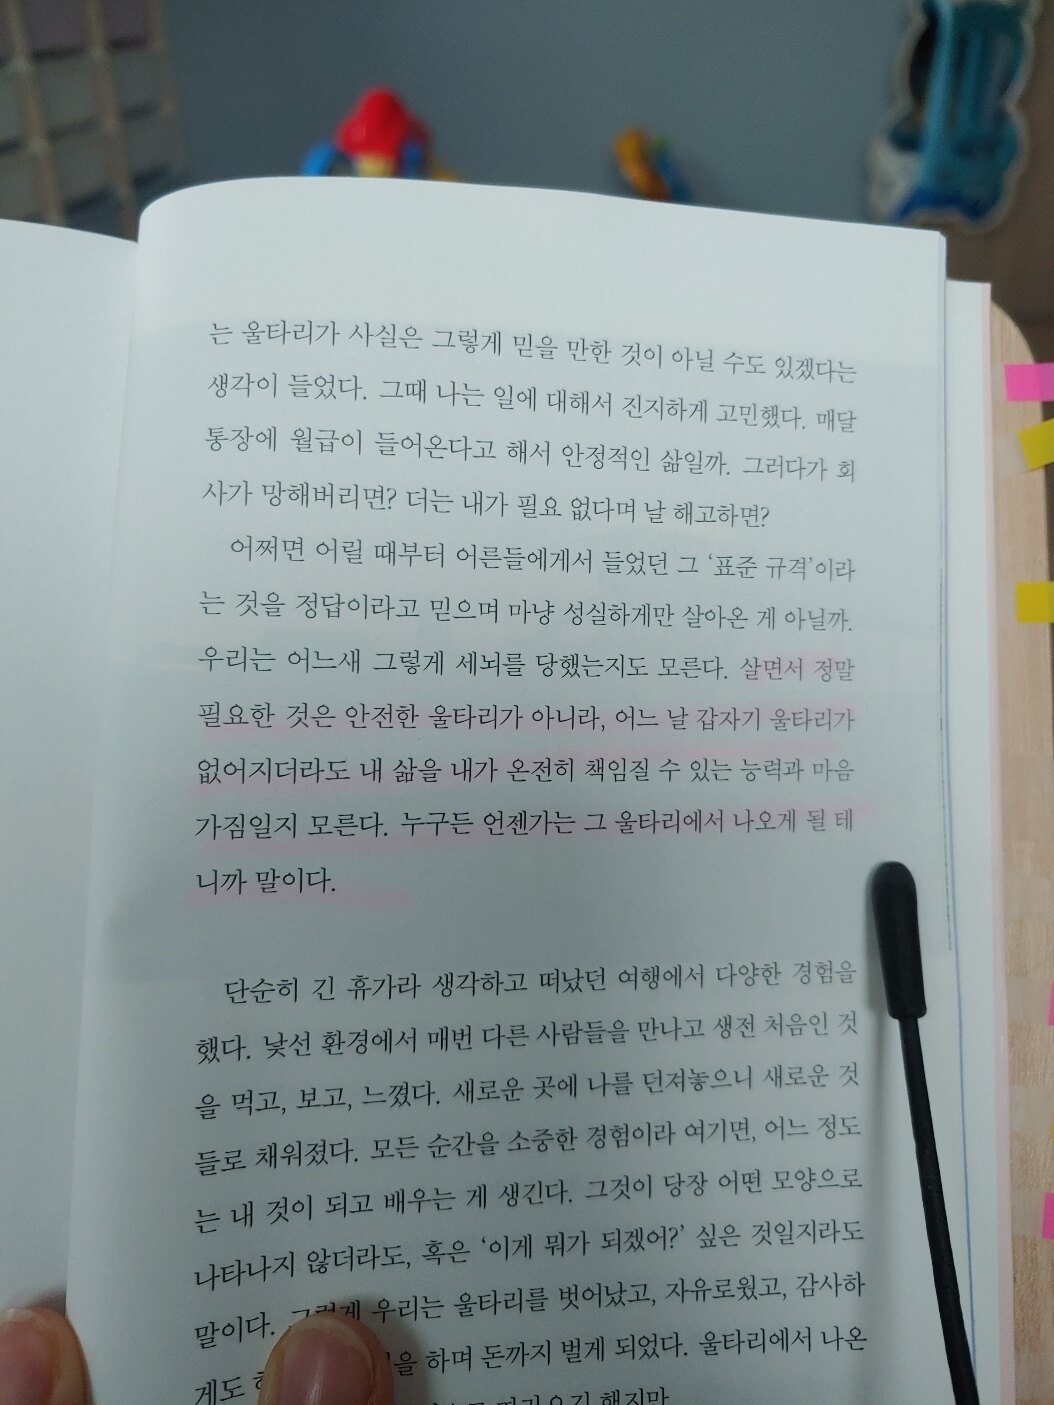 는 울타리가 사실은 그렇게 믿을 만한 것이 아닐 수도 있겠다는
생각이 들었다. 그때 나는 일에 대해서 진지하게 고민했다. 매달
통장에 월급이 들어온다고 해서 안정적인 삶일까. 그러다가 회
사가 망해버리면? 더는 내가 필요 없다며 날 해고하면?
어쩌면 어릴 때부터 어른들에게서 들었던 그 ‘표준 규격’이라
는 것을 정답이라고 믿으며 마냥 성실하게만 살아온 게 아닐까.
우리는 어느새 그렇게 세뇌를 당했는지도 모른다. 살면서 정말
필요한 것은 안전한 울타리가 아니라, 어느 날 갑자기 울타리가
없어지더라도 내 삶을 내가 온전히 책임질 수 있는 능력과 마음
가짐일지 모른다. 누구든 언젠가는 그 울타리에서 나오게 될 테
니까 말이다.
단순히 긴 휴가라 생각하고 떠났던 여행에서 다양한 경험을
했다. 낯선 환경에서 매번 다른 사람들을 만나고 생전 처음인 것
을 먹고, 보고, 느꼈다. 새로운 곳에 나를 던져놓으니 새로운 것
들로 채워졌다. 모든 순간을 소중한 경험이라 여기면, 어느 정도
는 내 것이 되고 배우는 게 생긴다. 그것이 당장 어떤 모양으로
나타나지 않더라도, 혹은 ‘이게 뭐가 되겠어?’ 싶은 것일지라도
말이다. 그렇게 우리는 울타리를 벗어났고, 자유로웠고, 감사하
게도 하며 돈까지 벌게 되었다. 울타리에서 나온